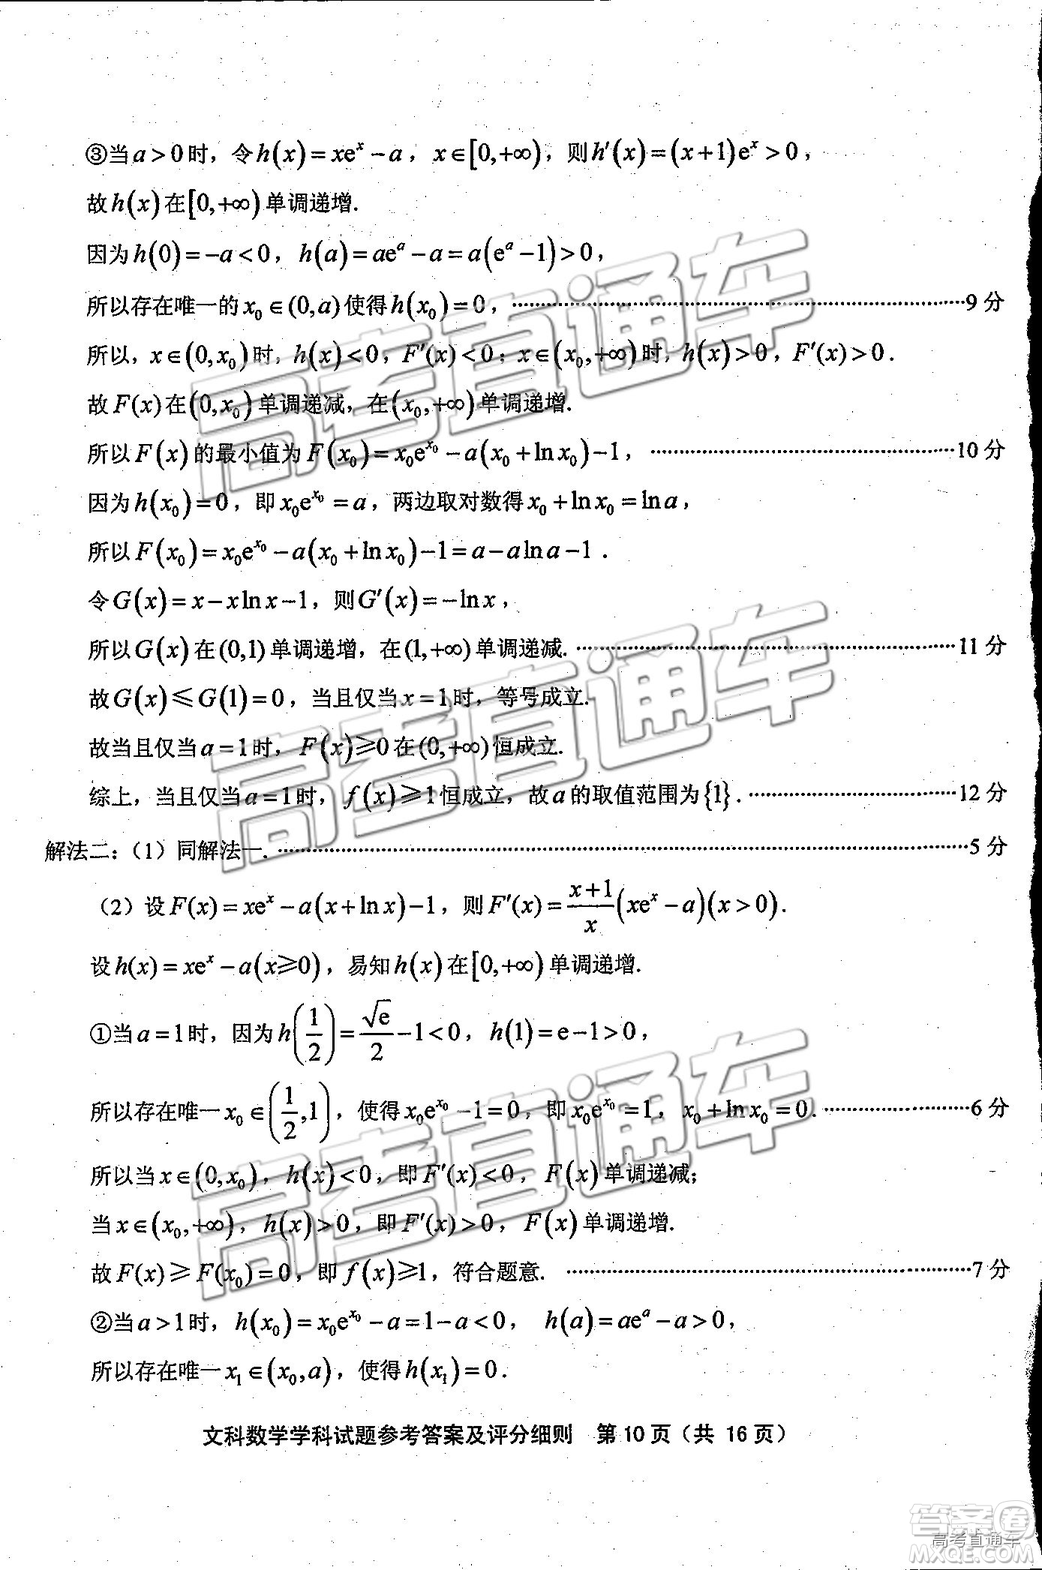 ③当a>0时，令h(x)=xeˣ-a，x∈[0,+∞)，则h′(x)=(x+1)eˣ>0，
故h(x)在[0,+∞)单调递增.
因为h(0)=-a<0，h(a)=aeᵃ-a=a(eᵃ-1)>0，
所以存在唯一的x₀∈(0,a)使得h(x₀)=0，………………9分
所以，x∈(0,x₀)时，h(x)<0，F′(x)<0；x∈(x₀,+∞)时，h(x)>0，F′(x)>0．
故F(x)在(0,x₀)单调递减，在(x₀,+∞)单调递增.
所以F(x)的最小值为F(x₀)=x₀e^{x₀}-a(x₀+lnx₀)-1，………………10分
因为h(x₀)=0，即x₀e^{x₀}=a，两边取对数得x₀+lnx₀=lna，
所以F(x₀)=x₀e^{x₀}-a(x₀+lnx₀)-1=a-alna-1．
令G(x)=x-xlnx-1，则G′(x)=-lnx，
所以G(x)在(0,1)单调递增，在(1,+∞)单调递减.………………11分
故G(x)≤G(1)=0，当且仅当x=1时，等号成立.
故当且仅当a=1时，F(x)≥0在(0,+∞)恒成立.
综上，当且仅当a=1时，f(x)≥1恒成立，故a的取值范围为{1}．………………12分
解法二：（1）同解法一.………………5分
（2）设F(x)=xeˣ-a(x+lnx)-1，则F′(x)=\frac{x+1}{x}(xeˣ-a)(x>0)．
设h(x)=xeˣ-a(x≥0)，易知h(x)在[0,+∞)单调递增.
①当a=1时，因为h(\frac{1}{2})=\frac{√e}{2}-1<0，h(1)=e-1>0，
所以存在唯一x₀∈(\frac{1}{2},1)，使得x₀e^{x₀}-1=0，即x₀e^{x₀}=1，x₀+lnx₀=0.………………6分
所以当x∈(0,x₀)，h(x)<0，即F′(x)<0，F(x)单调递减；
当x∈(x₀,+∞)，h(x)>0，即F′(x)>0，F(x)单调递增.
故F(x)≥F(x₀)=0，即f(x)≥1，符合题意.………………7分
②当a>1时，h(x₀)=x₀e^{x₀}-a=1-a<0，h(a)=aeᵃ-a>0，
所以存在唯一x₁∈(x₀,a)，使得h(x₁)=0．
文科数学学科试题参考答案及评分细则 第10页（共 16页）
高考直通车
高考直通车
高考直通车
答案圈
高考直通车
MXQE.COM